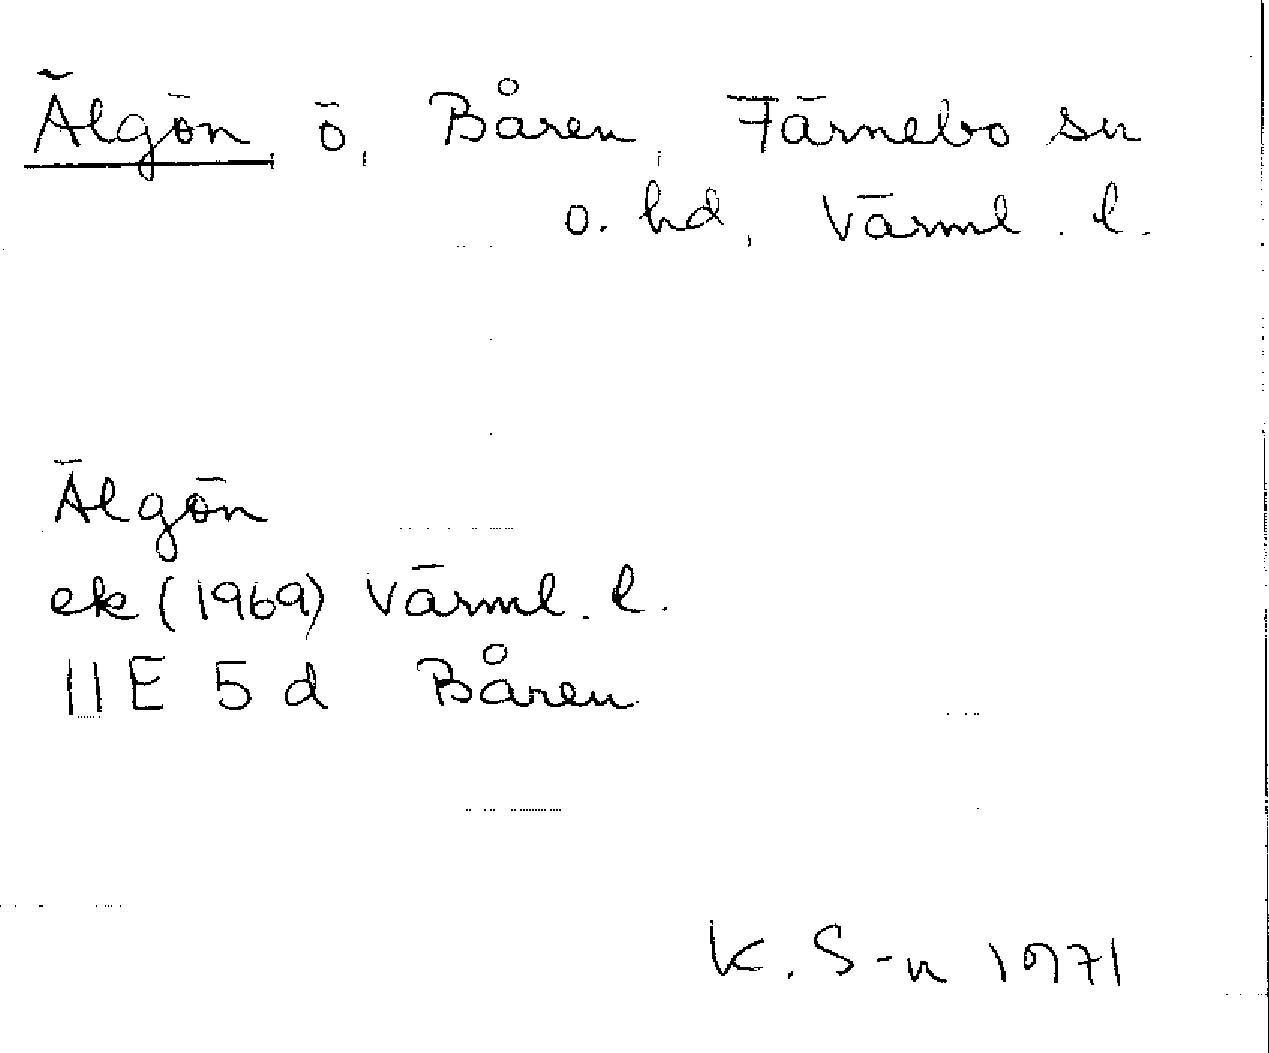 Älgön ö, Båren, Färnebo sn
o. hd, Värml. l.
Älgön
ek (1969) Värml. l.
11E 5d Båren
K. S-n 1971